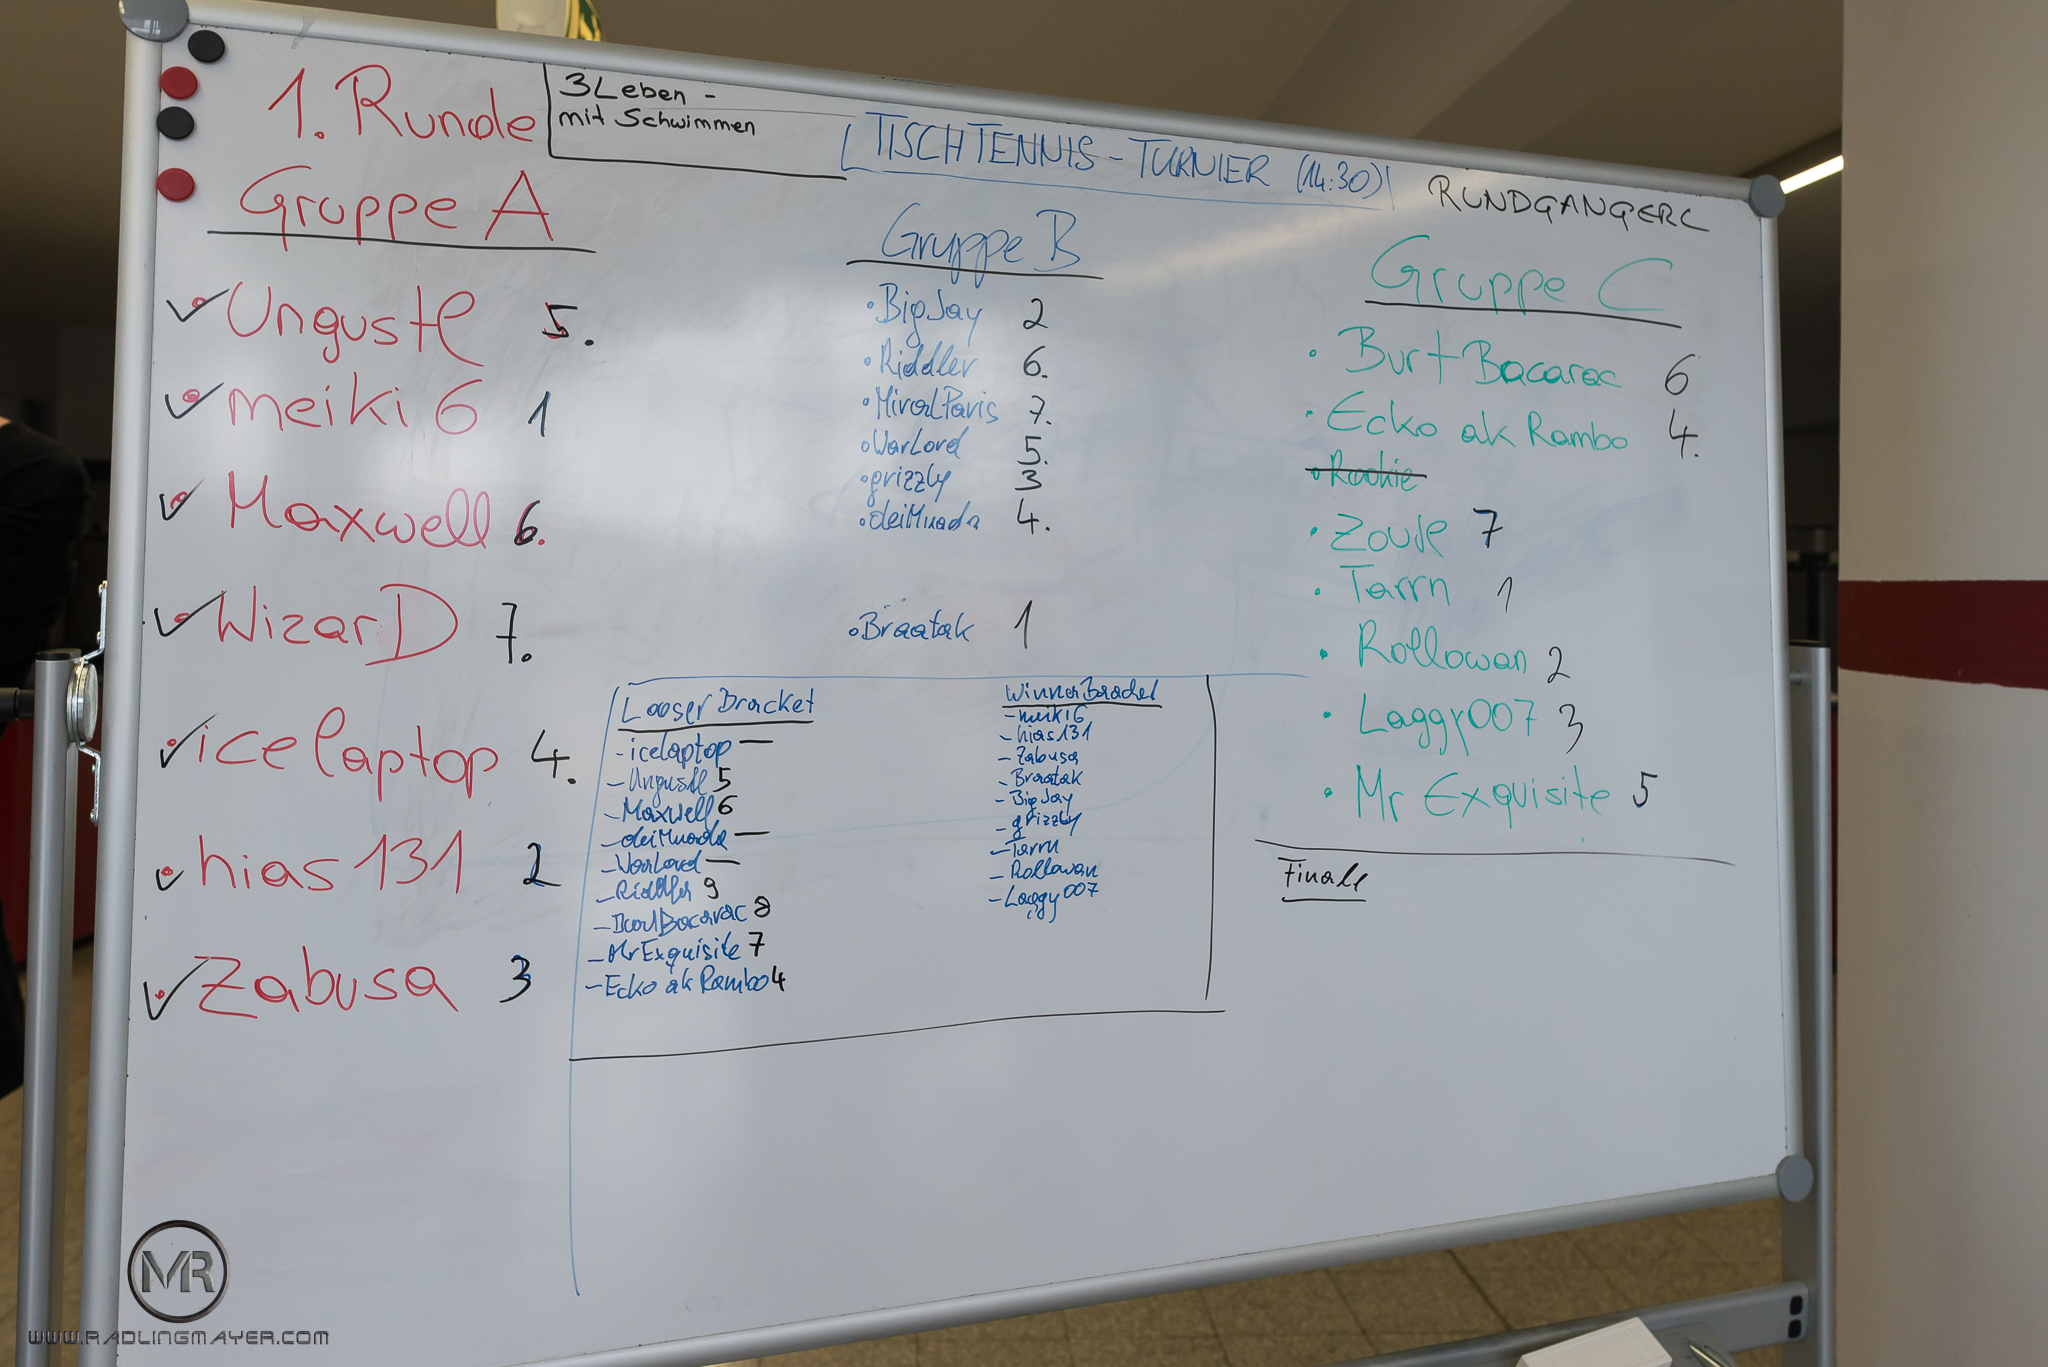 1. Runde
3Leben -
mit Schwimmen
TISCHTENNIS - TURNIER (14:30)
RUNDGANGERL
Gruppe A
Ungustl 5.
meiki 6 1
Maxwell 6.
WizarD 7.
icelaptop 4.
hias 131 2
Zabusa 3
Gruppe B
BigJay 2
Riddler 6.
MiralParis 7.
WarLord 5.
grizzly 3
deiMuada 4.
Braatak 1
Gruppe C
Burt Bacarac 6
Ecko ak Rambo 4.
Rookie
7
Tarrn 1
Rollowan 2
Laggy007 3
Mr Exquisite 5
Looser Bracket
- icelaptop —
- Ungustl 5
- Maxwell 6
- deiMuada —
- WarLord —
- Riddler 9
- Bacarac 8
- Mr Exquisite 7
- Ecko ak Rambo 4
Winner Bracket
- meiki6
- hias131
- Zabusa
- Braatak
- BigJay
- grizzly
- Tarrn
- Rollowan
- Laggy007
Finale
MR
WWW.RADLINGMAYER.COM